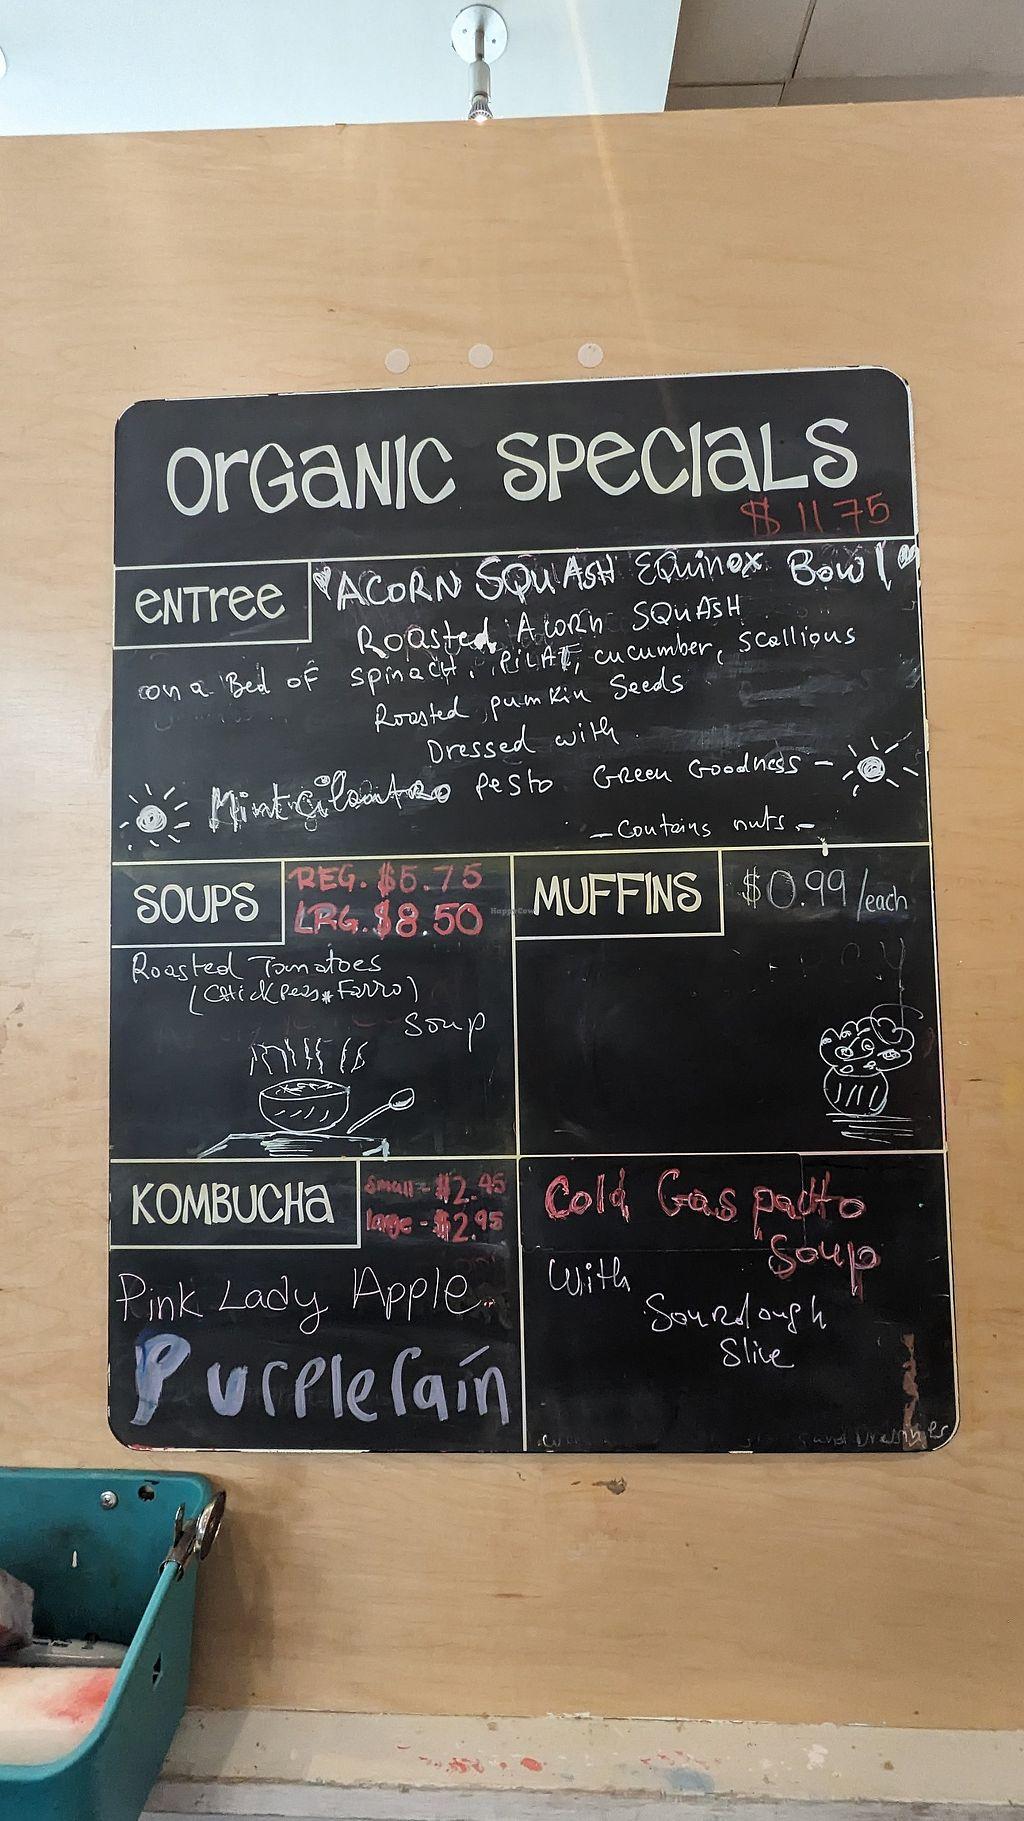 ORGANIC SPECIALS
$11.75
ENTREE
ACORN SQUASH EQuinox Bowl
Roasted Acorn SQuASH
on a Bed of spinach, PiLAF, cucumber, scallions
Roasted pumkin Seeds
Dressed with
Mint Cilantro pesto Green Goodness -
- Contains nuts -
SOUPS
REG. $5.75
LRG. $8.50
Roasted Tomatoes
(Chickpeas & Farro)
Soup
MUFFINS
$0.99/each
KOMBUCHA
Small - $2.45
large - $2.95
Pink Lady Apple
Purple rain
Cold Gaspachto
Soup
With
Sourdough
Slice
HappyCow